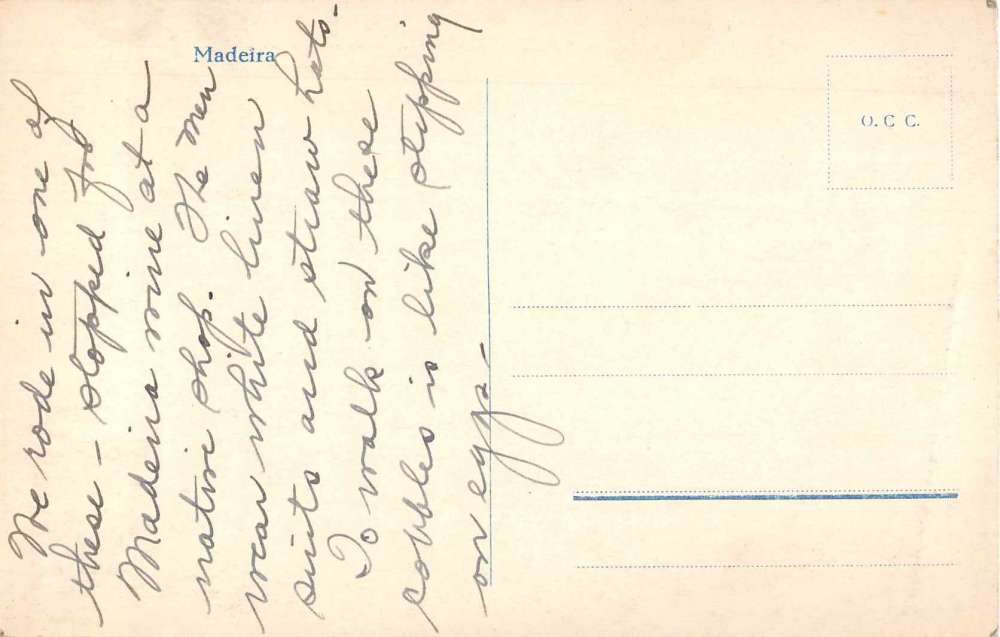 Madeira
O. C C.
We rode in one of
these - stopped for
Madeira wine at a
native shop. The men
wear white linen
suits and straw hats-
To walk on these
cobbles is like stepping
on eggs-